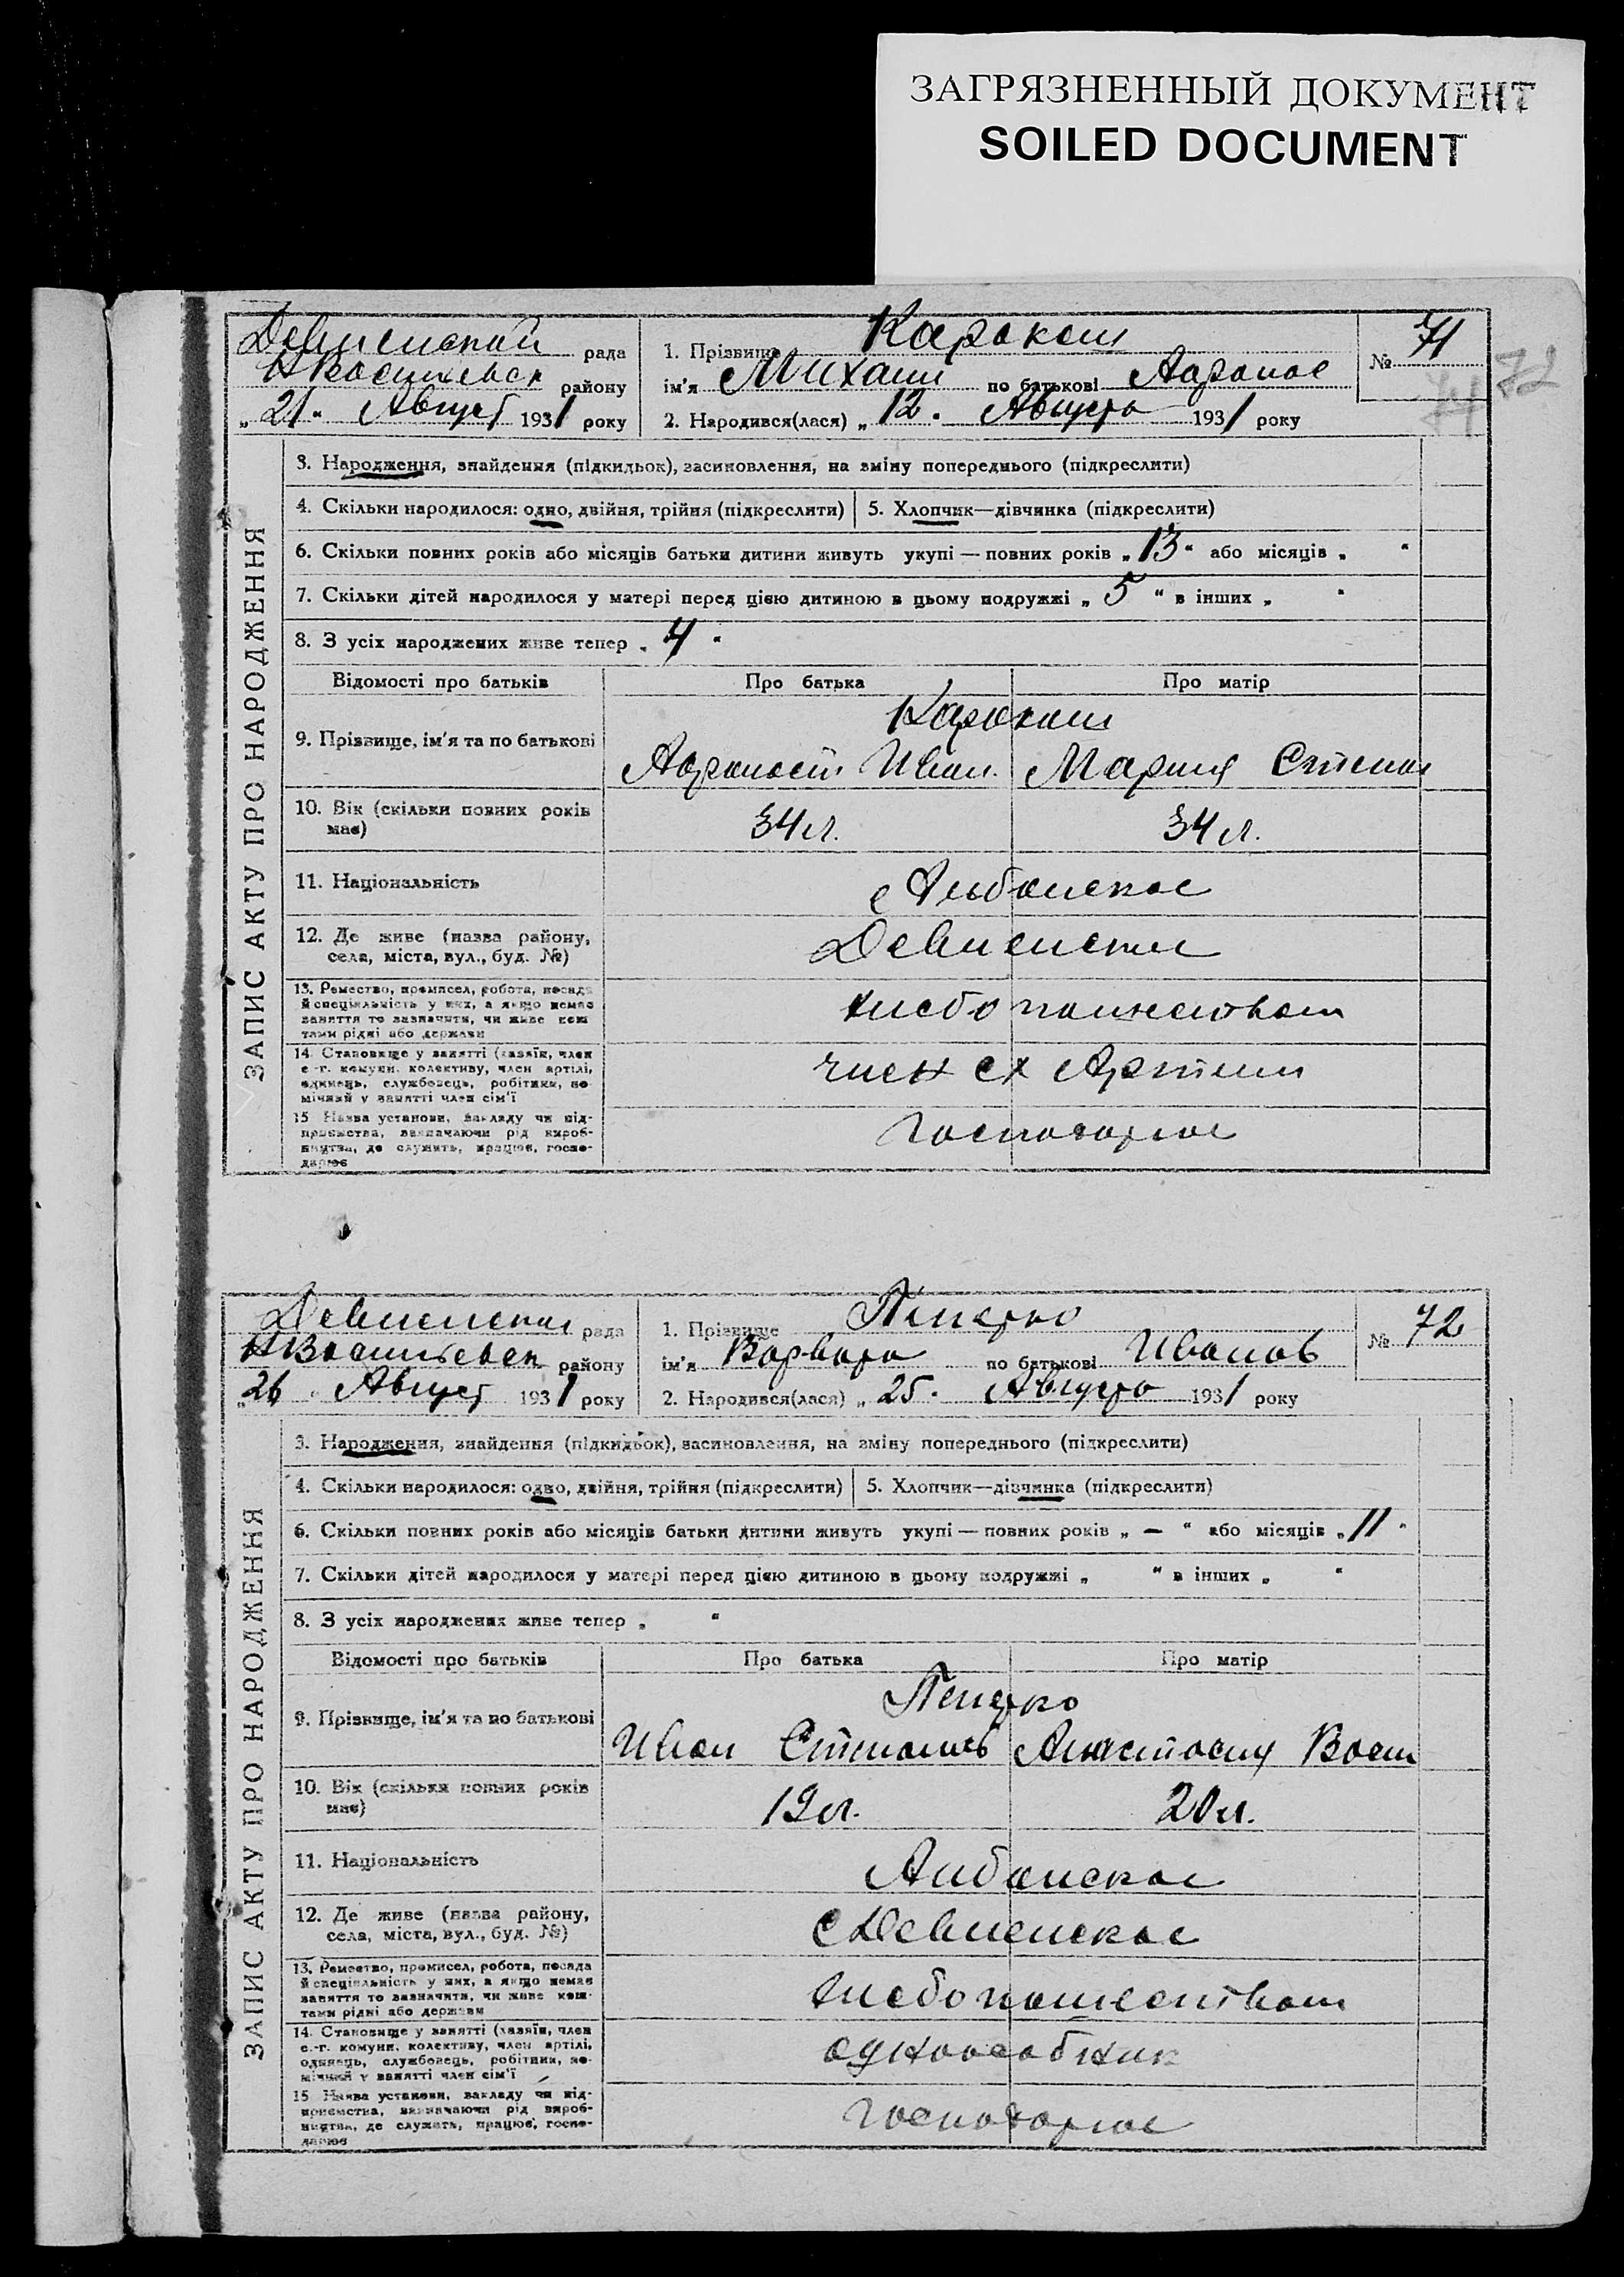 ЗАГРЯЗНЕННЫЙ ДОКУМЕНТ
SOILED DOCUMENT
Девненской рада
НВасильевск району
„21“ Август 1931 року
1. Прізвище Каракаш
ім'я Михаил по батькові
2. Народився(лася) „12“ Августа 1931 року
№ 71
72
ЗАПИС АКТУ ПРО НАРОДЖЕННЯ
3. Народження, знайдення (підкидьок), засиновлення, на зміну попереднього (підкреслити)
4. Скільки народилося: одно, двійня, трійня (підкреслити) 5. Хлопчик—дівчинка (підкреслити)
6. Скільки повних років або місяців батьки дитини живуть укупі — повних років „13“ або місяців „ “
7. Скільки дітей народилося у матері перед цією дитиною в цьому подружжі „5“ в інших „ “
8. З усіх народжених живе тепер „4“
Відомості про батьків Про батька Про матір
9. Прізвище, ім'я та по батькові
Каракаш
Иван. Мария Степан
10. Вік (скільки повних років
має)
34 л. 34 л.
11. Національність
Албанское
12. Де живе (назва району,
села, міста, вул., буд. №)
Девненское
13. Ремество, промисел, робота, посада
й спеціяльність у них, а якщо немає
заняття то зазначити, чи живе кош-
тами рідні або держави
хлебопашеством
14. Становище у занятті (хазяїн, член
с.-г. комуни, колективу, член артілі,
одинець, службовець, робітник, по-
мічний у занятті член сім'ї
член сх Артели
15. Назва установи, закладу чи під-
приємства, зазначаючи рід вироб-
ництва, де служить, працює, госпо-
дарює
Господарює
Девненская рада
НВасильевск району
„26“ Август 1931 року
1. Прізвище
ім'я Варвара по батькові Иванов
2. Народився(лася) „25“ Августа 1931 року
№ 72
ЗАПИС АКТУ ПРО НАРОДЖЕННЯ
3. Народження, знайдення (підкидьок), засиновлення, на зміну попереднього (підкреслити)
4. Скільки народилося: одно, двійня, трійня (підкреслити) 5. Хлопчик—дівчинка (підкреслити)
6. Скільки повних років або місяців батьки дитини живуть укупі — повних років „ — “ або місяців „11“
7. Скільки дітей народилося у матері перед цією дитиною в цьому подружжі „ “ в інших „ “
8. З усіх народжених живе тепер „ “
Відомості про батьків Про батька Про матір
9. Прізвище, ім'я та по батькові
Иван Степанов Анастасия Васил
10. Вік (скільки повних років
має)
19 л. 20 л.
11. Національність
Албанское
12. Де живе (назва району,
села, міста, вул., буд. №)
с Девненское
13. Ремество, промисел, робота, посада
й спеціяльність у них, а якщо немає
заняття то зазначити, чи живе кош-
тами рідні або держави
хлебопашеством
14. Становище у занятті (хазяїн, член
с.-г. комуни, колективу, член артілі,
одинець, службовець, робітник, по-
мічний у занятті член сім'ї
одноособник
15. Назва установи, закладу чи під-
приємства, зазначаючи рід вироб-
ництва, де служить, працює, госпо-
дарює
Господарює